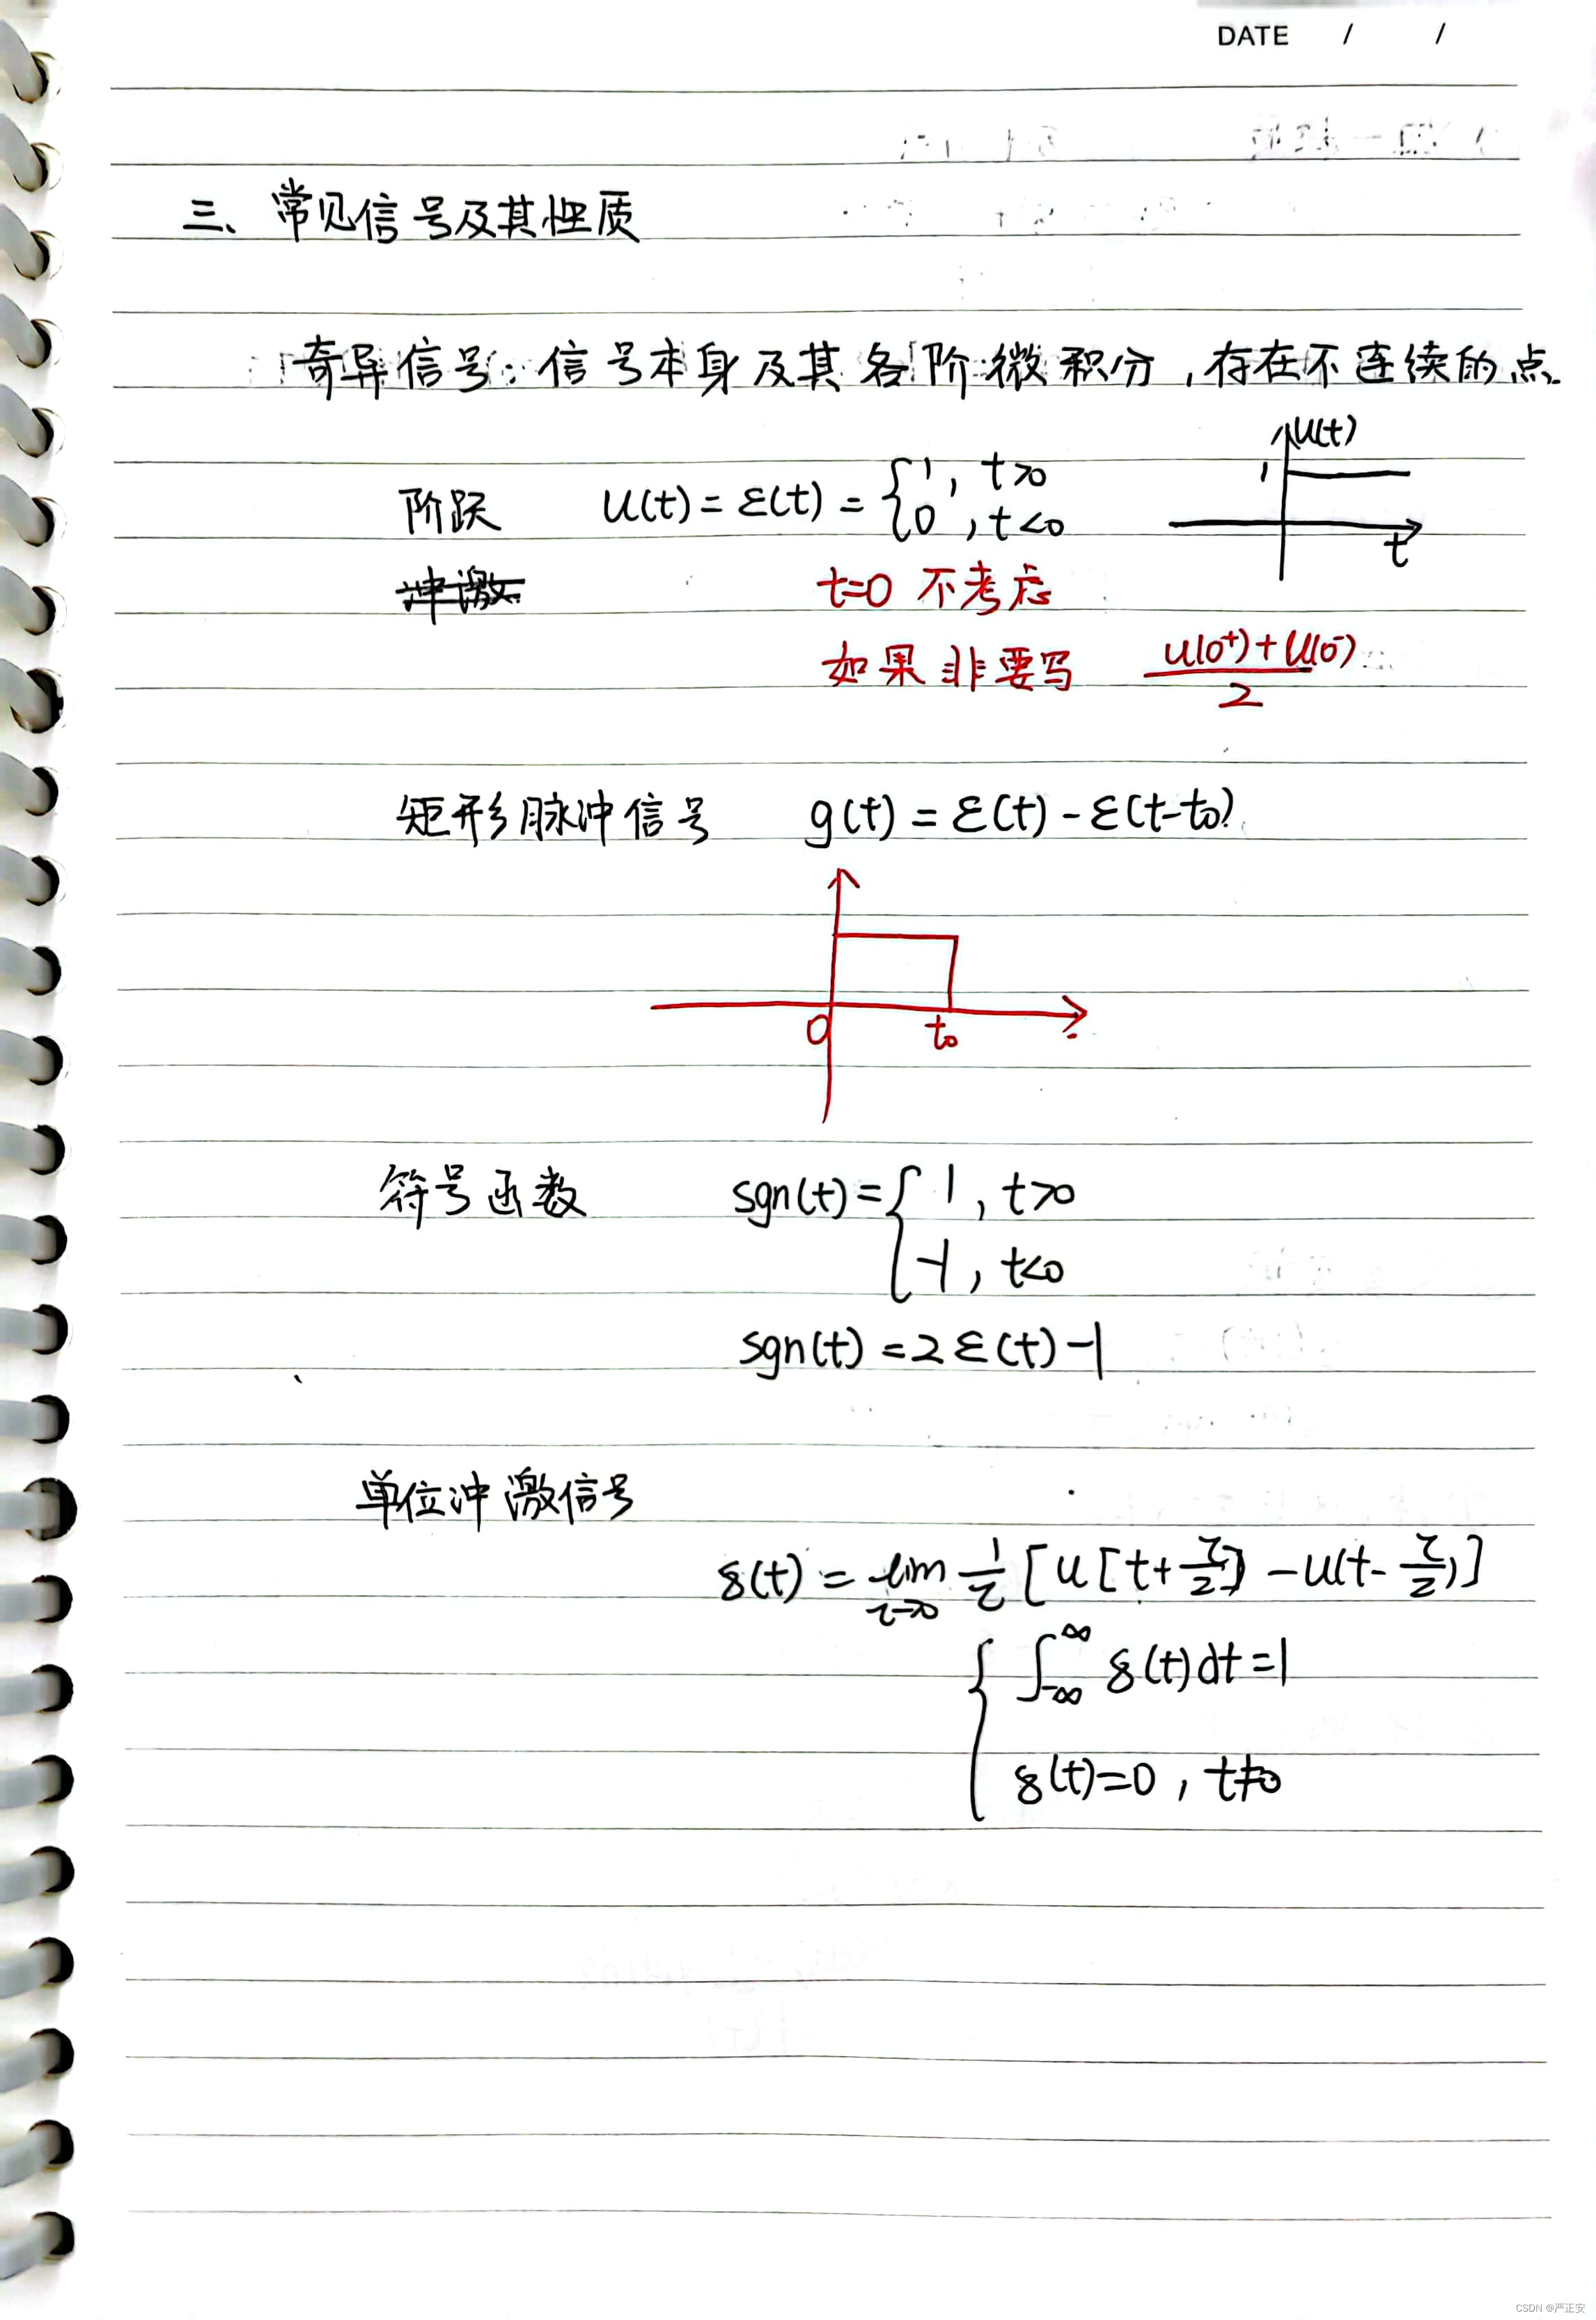 DATE / /
三、常见信号及其性质
奇异信号：信号本身及其各阶微积分，存在不连续的点.
阶跃 u(t) = ε(t) = { 1, t>0
0, t<0
u(t)
1
t
冲激
t=0 不考虑
如果非要写 (u(0⁺)+u(0⁻))/2
矩形脉冲信号 g(t) = ε(t) - ε(t-t₀)
0 t₀
符号函数 sgn(t) = { 1, t>0
-1, t<0
sgn(t) = 2ε(t)-1
单位冲激信号
δ(t) = lim τ→0 1/τ [u[t+τ/2] - u(t-τ/2)]
{ ∫_{-∞}^{∞} δ(t)dt=1
δ(t)=0, t≠0
CSDN @严正安